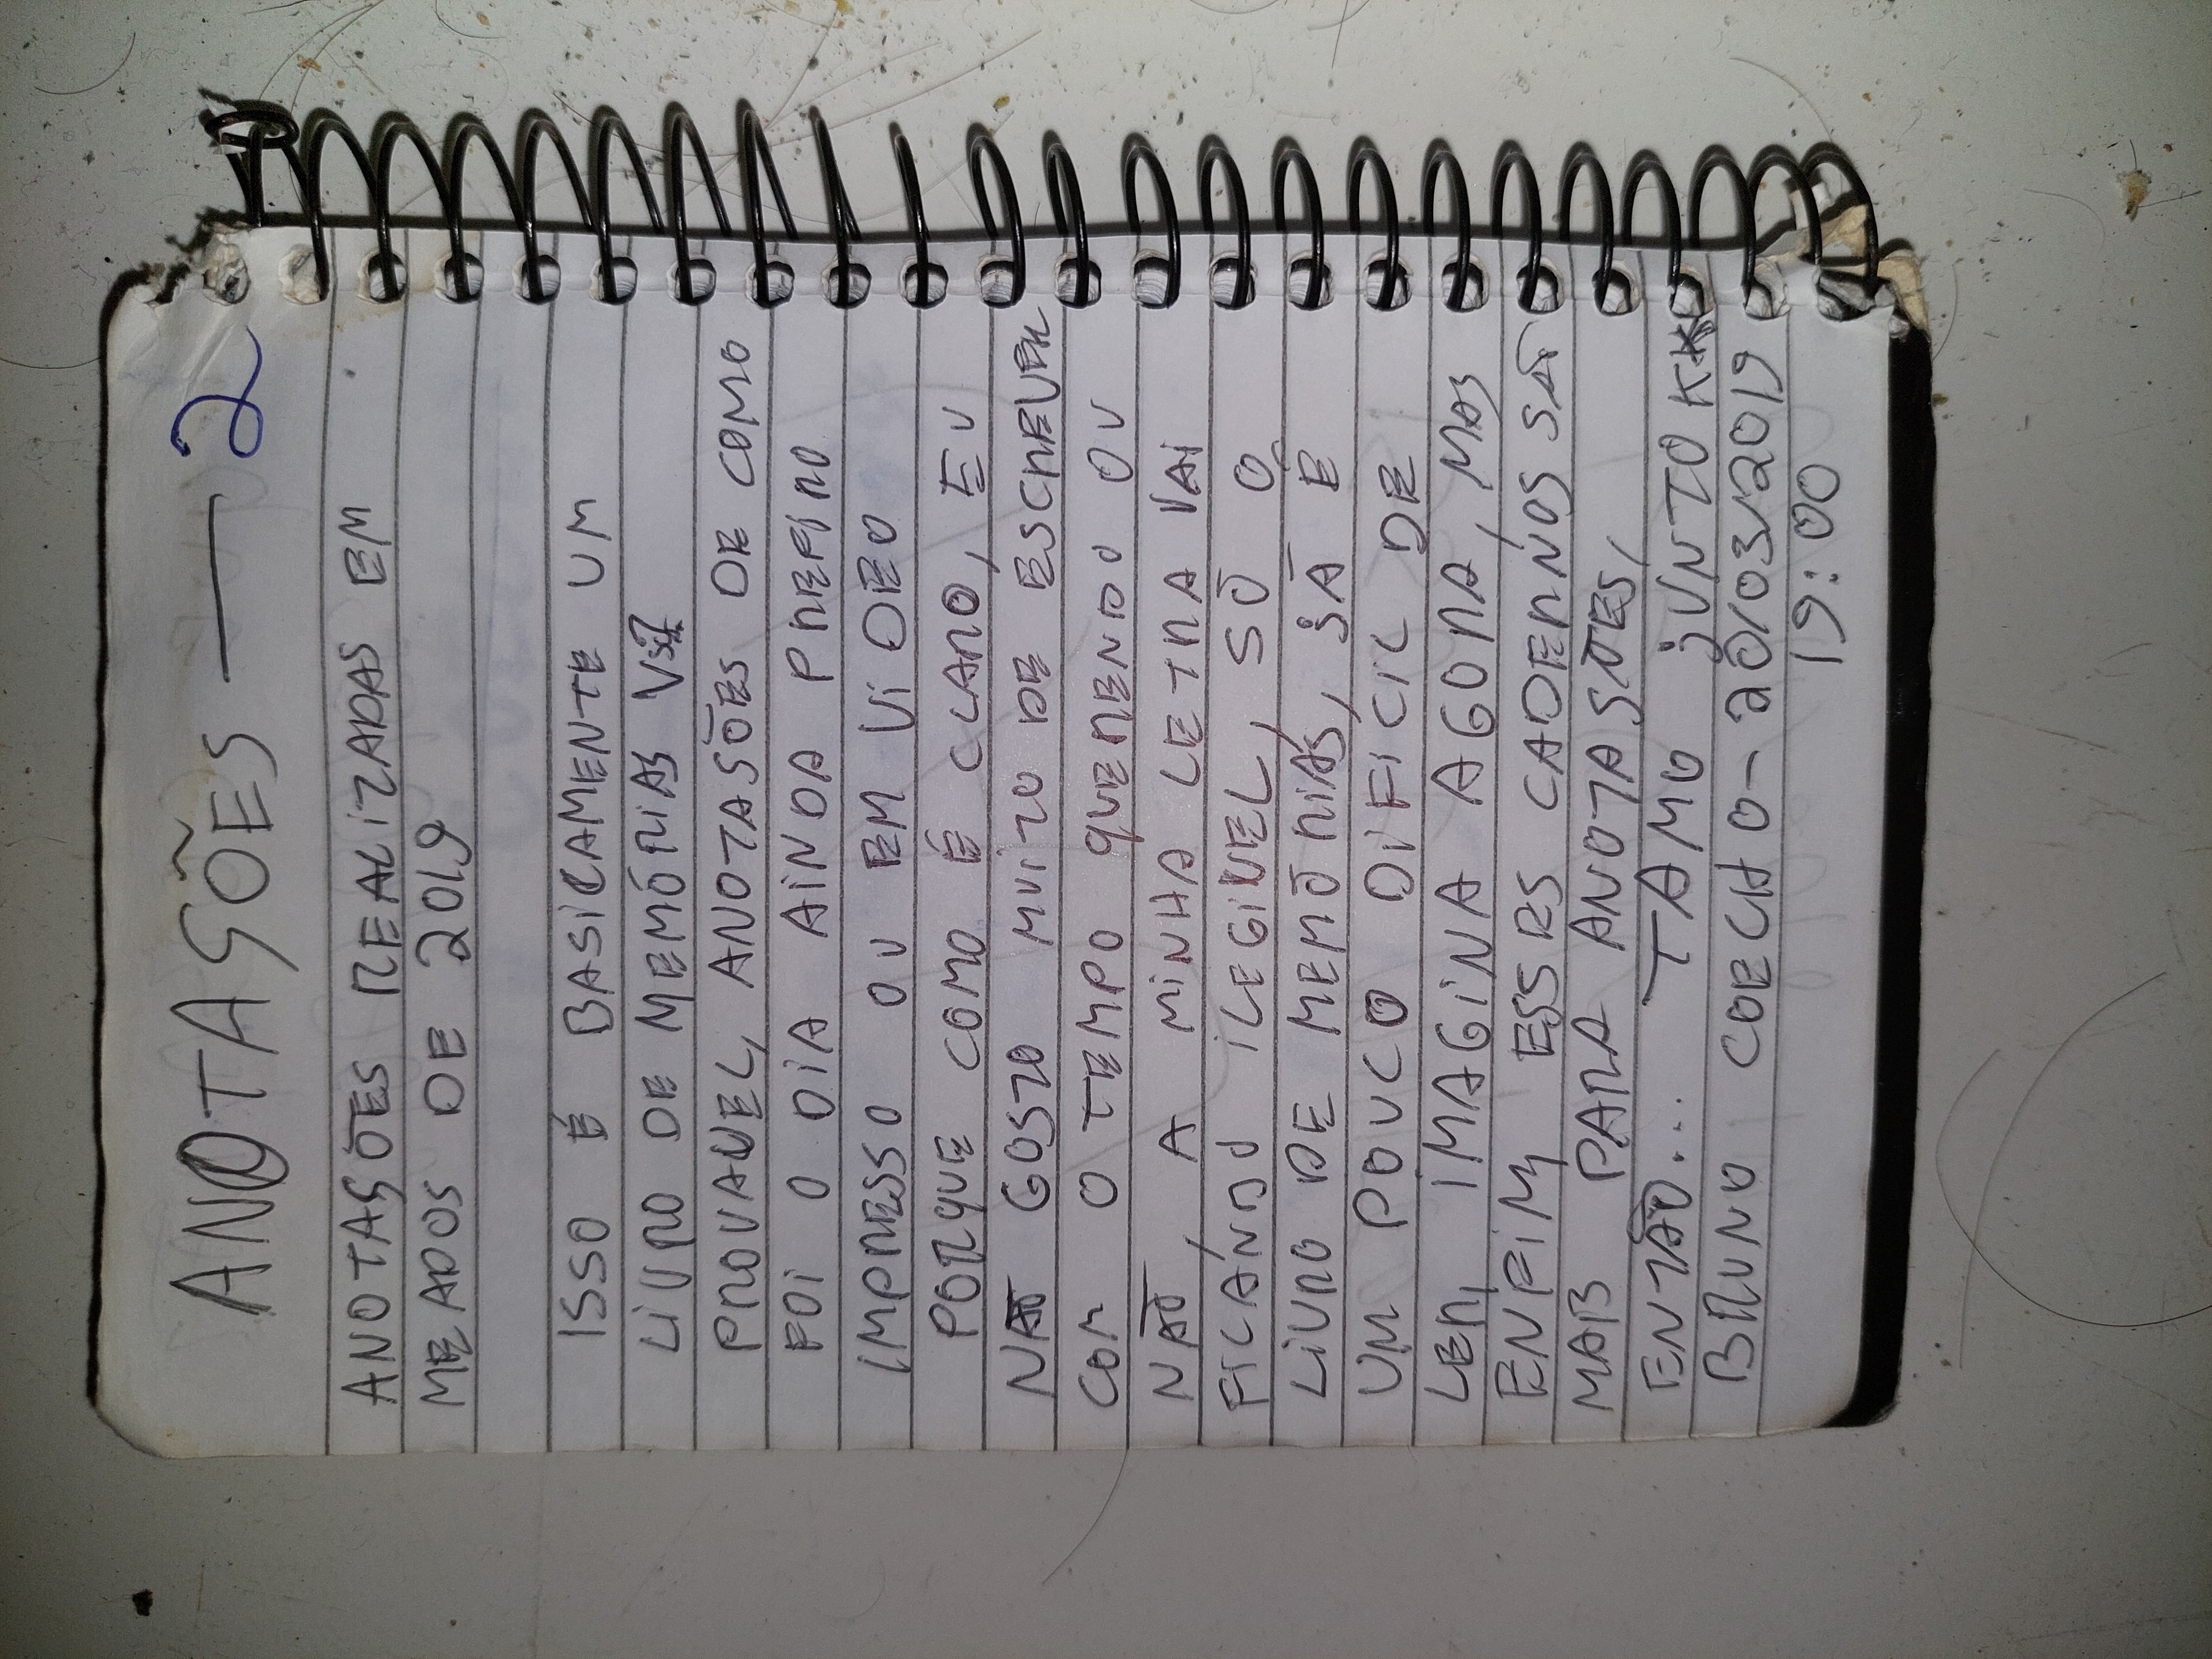 ANOTASÕES — 2
ANOTASÕES REALIZADAS EM
MEADOS DE 2019
ISSO É BASICAMENTE UM
LIVRO DE MEMÓRIAS
PROVAVEL, ANOTASÕES DE COMO
FOI O DIA AINDA PREFIRO
IMPRESSO OU EM VIDEO
PORQUE COMO É CLARO, EU
NÃO GOSTO MUITO DE ESCREVER
COM O TEMPO QUERENDO OU
NÃO, A MINHA LETRA VAI
FICANDO ILEGIVEL, SÓ O
LIVRO DE MEMÓRIAS, JÁ É
UM POUCO DIFICIL DE
LER, IMAGINA AGORA, MAS
ENFIM ESSES CADERNOS SÃO
MAIS PARA ANOTASÕES,
ENTÃO... TAMO JUNTO KK
BRUNO COELHO - 20/03/2019
19:00